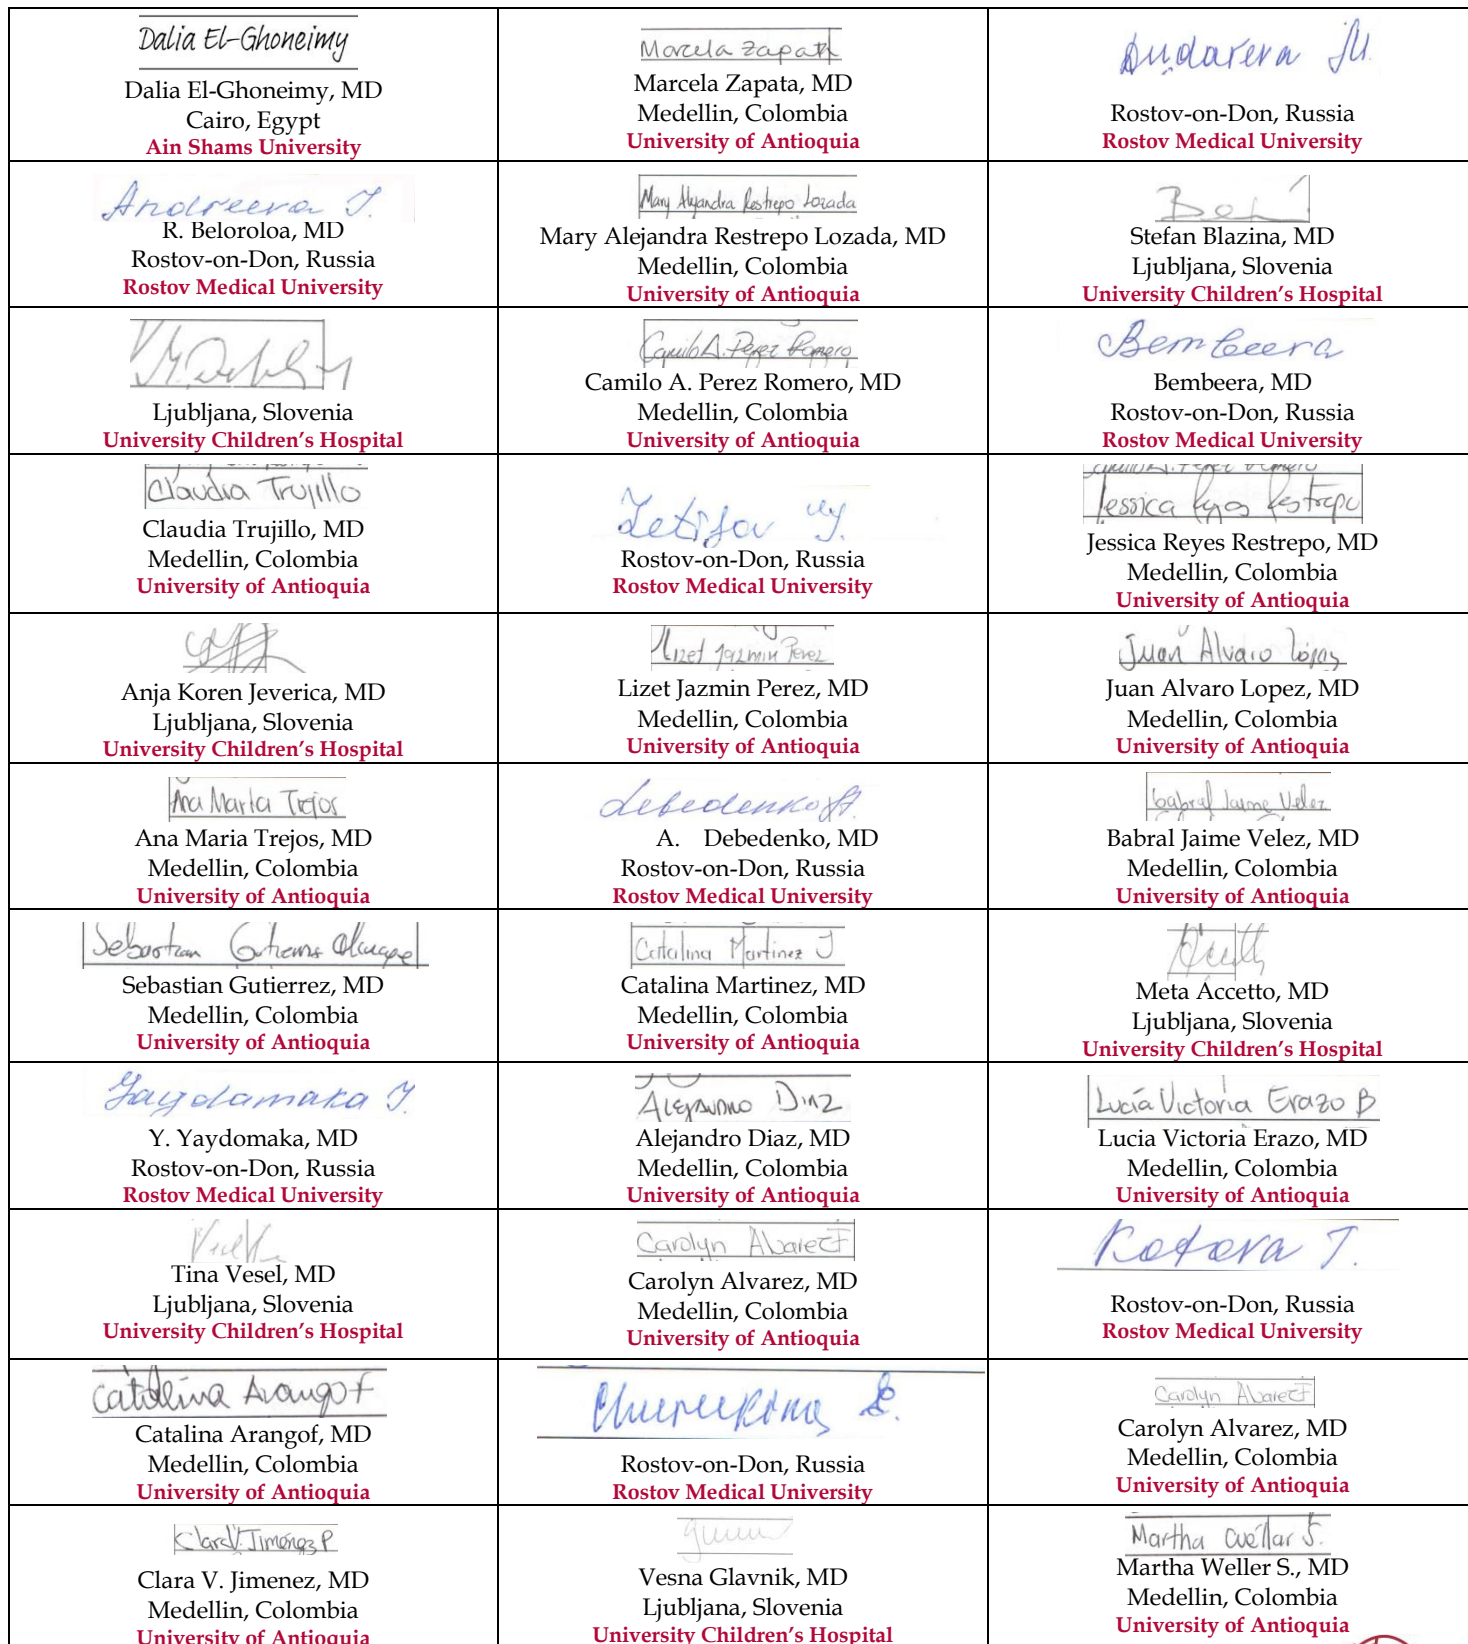 Dalia El-Ghoneimy
Dalia El-Ghoneimy, MD
Cairo, Egypt
Ain Shams University
Marcela Zapata
Marcela Zapata, MD
Medellin, Colombia
University of Antioquia
Rostov-on-Don, Russia
Rostov Medical University
Andreeva J.
R. Beloroloa, MD
Rostov-on-Don, Russia
Rostov Medical University
Mary Alejandra Restrepo Lozada
Mary Alejandra Restrepo Lozada, MD
Medellin, Colombia
University of Antioquia
Stefan Blazina, MD
Ljubljana, Slovenia
University Children's Hospital
Ljubljana, Slovenia
University Children's Hospital
Camilo A. Perez Romero
Camilo A. Perez Romero, MD
Medellin, Colombia
University of Antioquia
Bembeera
Bembeera, MD
Rostov-on-Don, Russia
Rostov Medical University
Claudia Trujillo
Claudia Trujillo, MD
Medellin, Colombia
University of Antioquia
Rostov-on-Don, Russia
Rostov Medical University
Jessica Reyes Restrepo
Jessica Reyes Restrepo, MD
Medellin, Colombia
University of Antioquia
Anja Koren Jeverica, MD
Ljubljana, Slovenia
University Children's Hospital
Lizet Jazmin Perez
Lizet Jazmin Perez, MD
Medellin, Colombia
University of Antioquia
Juan Alvaro López
Juan Alvaro Lopez, MD
Medellin, Colombia
University of Antioquia
Ana María Trejos
Ana Maria Trejos, MD
Medellin, Colombia
University of Antioquia
Lebedenko A.
A. Debedenko, MD
Rostov-on-Don, Russia
Rostov Medical University
Gabral Jaime Velez
Babral Jaime Velez, MD
Medellin, Colombia
University of Antioquia
Sebastian Gutierrez
Sebastian Gutierrez, MD
Medellin, Colombia
University of Antioquia
Catalina Martinez J
Catalina Martinez, MD
Medellin, Colombia
University of Antioquia
Meta Accetto, MD
Ljubljana, Slovenia
University Children's Hospital
Gaydamaka J.
Y. Yaydomaka, MD
Rostov-on-Don, Russia
Rostov Medical University
Alejandro Diaz
Alejandro Diaz, MD
Medellin, Colombia
University of Antioquia
Lucía Victoria Erazo B
Lucia Victoria Erazo, MD
Medellin, Colombia
University of Antioquia
Tina Vesel, MD
Ljubljana, Slovenia
University Children's Hospital
Carolyn Alvarez F
Carolyn Alvarez, MD
Medellin, Colombia
University of Antioquia
Kotova T.
Rostov-on-Don, Russia
Rostov Medical University
Catalina Arango F
Catalina Arangof, MD
Medellin, Colombia
University of Antioquia
Rostov-on-Don, Russia
Rostov Medical University
Carolyn Alvarez F
Carolyn Alvarez, MD
Medellin, Colombia
University of Antioquia
Clara V. Jiménez P
Clara V. Jimenez, MD
Medellin, Colombia
University of Antioquia
Vesna Glavnik, MD
Ljubljana, Slovenia
University Children's Hospital
Martha Cuéllar S.
Martha Weller S., MD
Medellin, Colombia
University of Antioquia